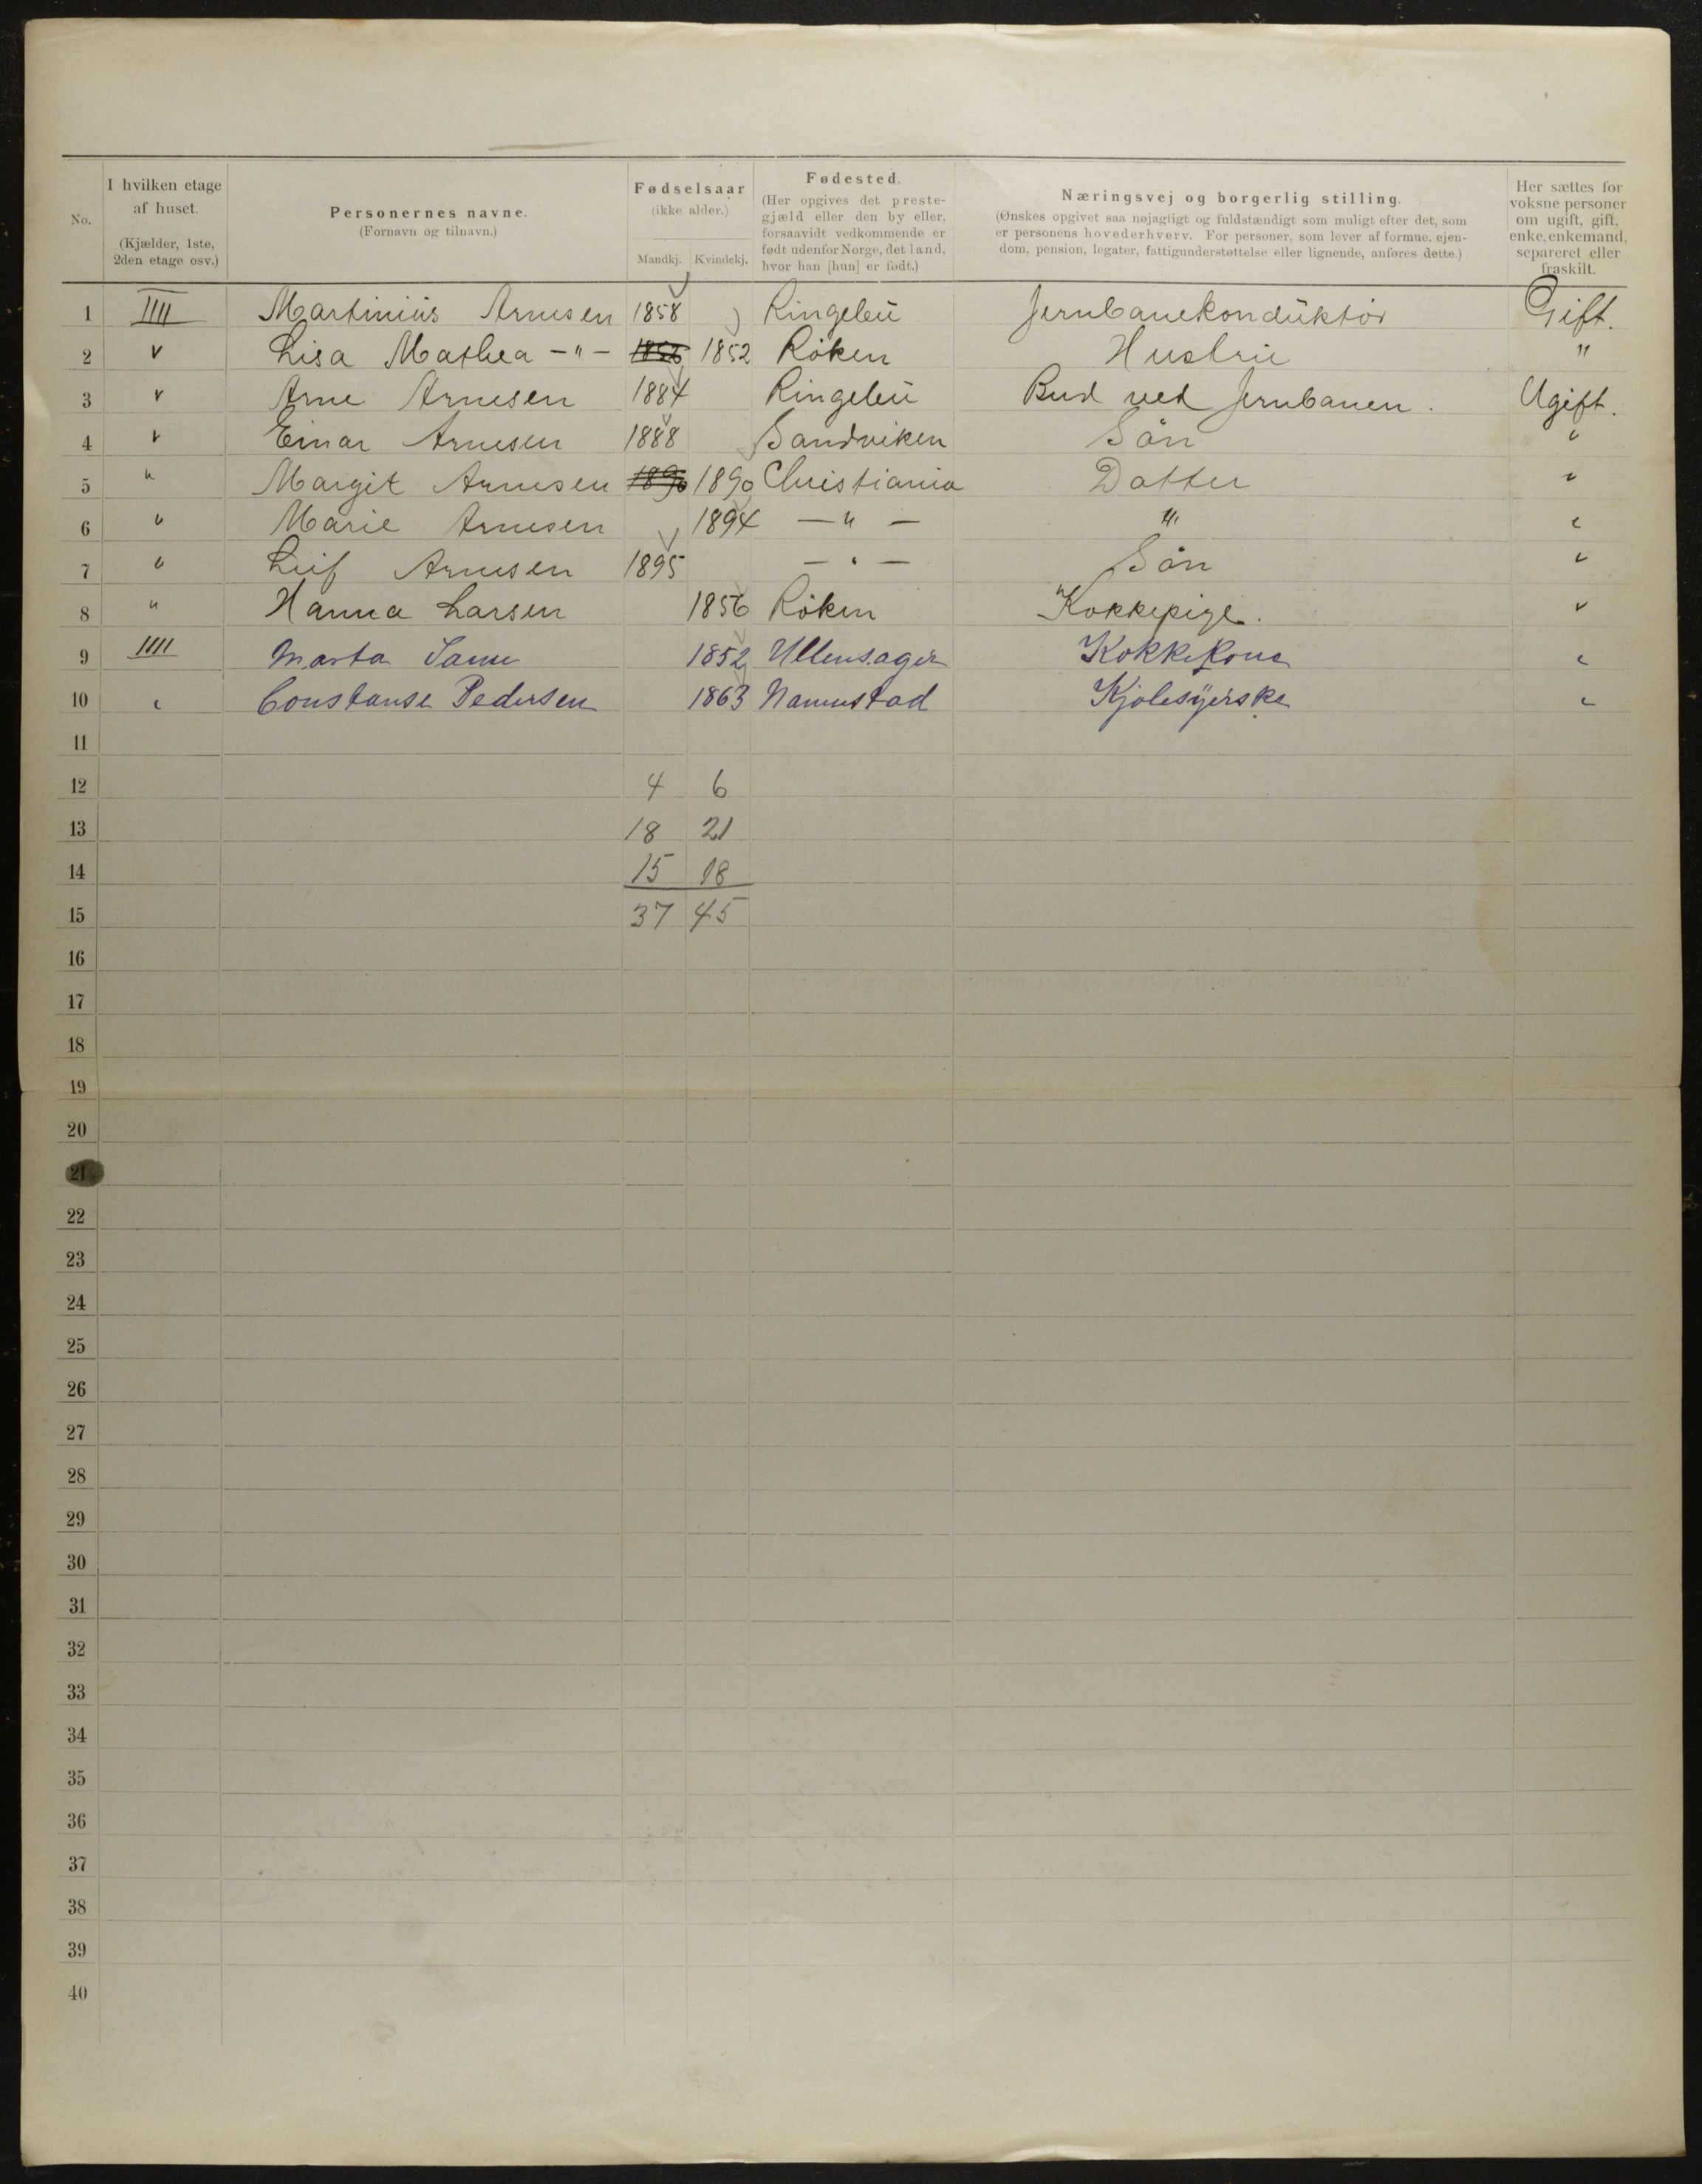 No. I hvilken etage af huset. (Kjælder, 1ste, 2den etage osv.) Personernes navne. (Fornavn og tilnavn.) Fødselsaar (ikke alder.) Mandkj. Kvindekj. Fødested. (Her opgives det prestegjæld eller den by eller, forsaavidt vedkommende er født udenfor Norge, det land, hvor han [hun] er født.) Næringsvej og borgerlig stilling. (Ønskes opgivet saa nøjagtigt og fuldstændigt som muligt efter det, som er personens hovederhverv. For personer, som lever af formue, ejendom, pension, legater, fattigunderstøttelse eller lignende, anføres dette.) Her sættes for voksne personer om ugift, gift, enke, enkemand, separeret eller fraskilt.
1 IIII Martinius Arnesen 1858 Ringebu Jernbanekonduktør Gift.
2 " Lisa Mathea -"- 1852 1852 Röken Hustru "
3 " Arne Arnesen 1884 Ringebu Bud ved Jernbanen. Ugift.
4 " Einar Arnesen 1888 Sandviken Sön "
5 " Margit Arnesen 1890 1890 Christiania Datter "
6 " Marie Arnesen 1894 — " — " "
7 " Leif Arnesen 1895 — " — Sön "
8 " Hanna Larsen 1856 Röken Kokkepige. "
9 IIII Marta 1852 Ullensager Kokkekone "
10 " Constanse Pedersen 1863 Nannestad Kjolesyerske "
11
12 4 6
13 18 21
14 15 18
15 37 45
16
17
18
19
20
21
22
23
24
25
26
27
28
29
30
31
32
33
34
35
36
37
38
39
40